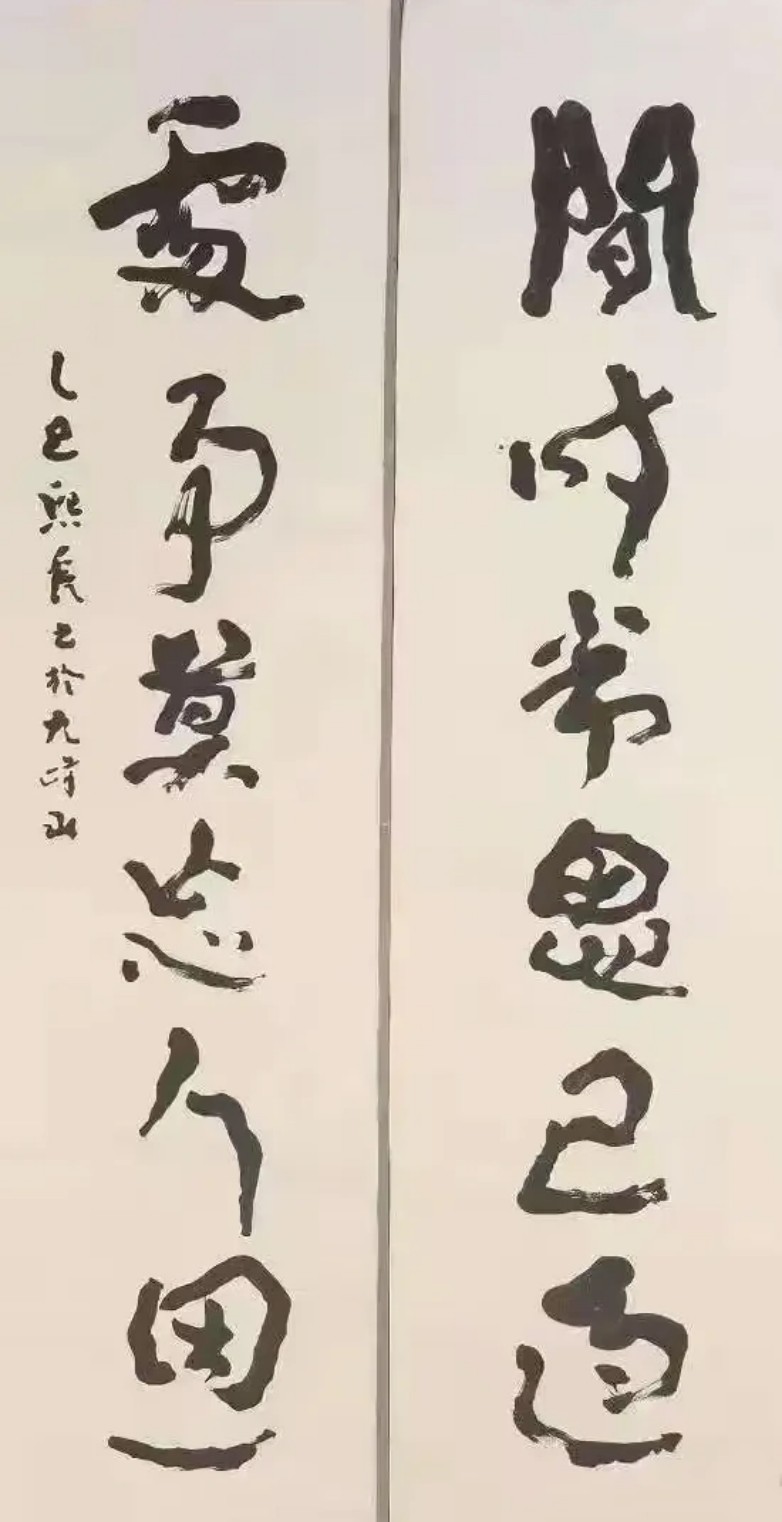 閒時常思己過
處事莫忘人恩
乙巳熙長書於九峰山